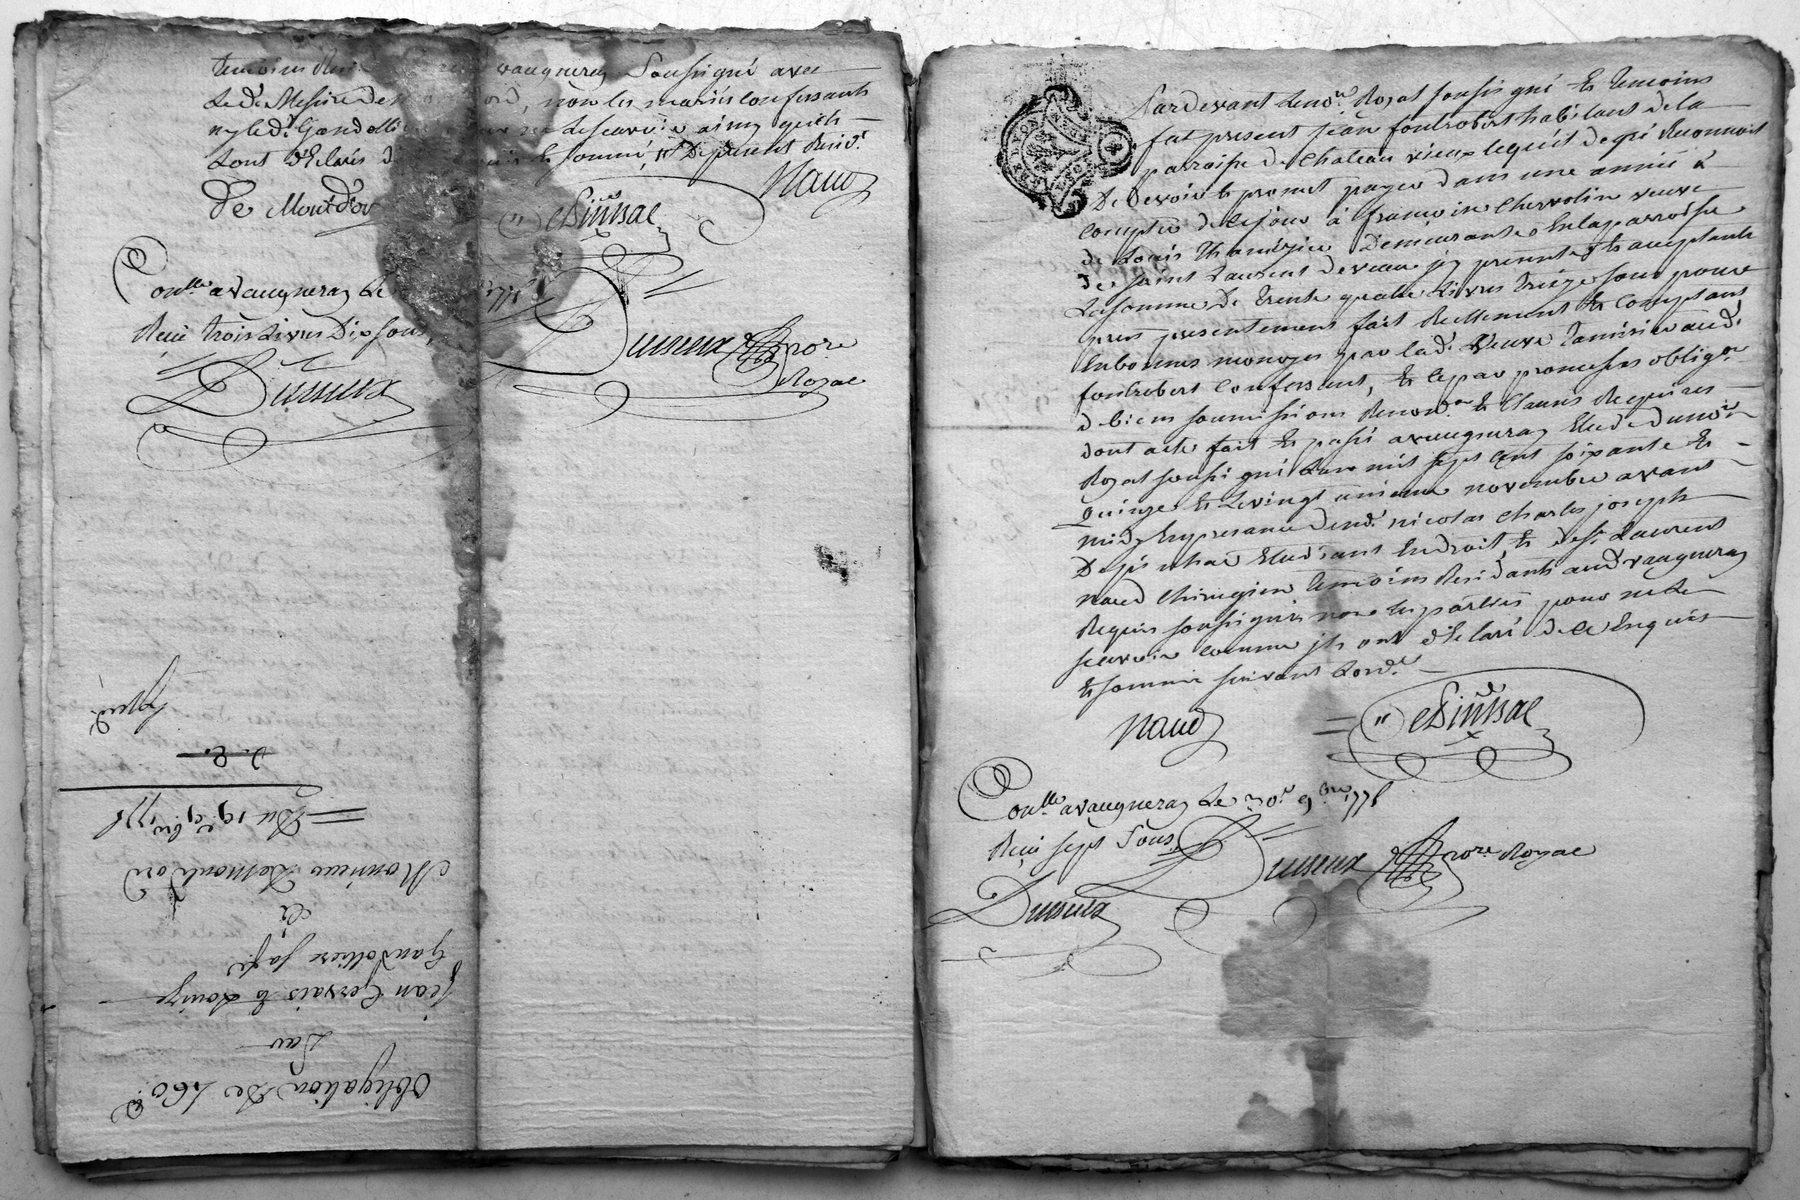 temoins vaugneray Soussigné avec
Led. Messire de non les mariés confessants
ny led. Gandolliere ne scavoir a iny qu'ils
ont déclaré de sommé, Dr. De present Resid.
De Montd'or
eDinssac
Naud
Conlle a vaugneray Le
Reçu trois Livres Dix sous,
Dumeux
Dumeux nore
Royal
Obligation De 160.
Par
jean Gervais & Louise
Gandolliere sa fe
à
Monsieur De Montdor
Du 19e 9bre 1775
Par devant Le nore. Royal soussigné Et temoins
fut present jean fontrobert habitant de la
parroisse de Chateau vieux lequel de gré Reconnoit
De Devoir Et promet payer dans une année à
Compter de ce jour à francoise Chervolin veuve
de Louis Demeurante En la parroisse
de Saint Laurent de veau jcy presente & acceptante
La somme De trente quatre Livres treize sous pour
prix presentement fait Reellement Et Comptant
En bonnes monoyes par lad. Veuve aud.
fontrobert Confessant, Et ce par promesses oblig.on
de biens soumissions Renon.on Et Clauses Requises
dont acte fait Et passé a vaugneray Etude dud. nore
Royal soussigné L'an mil sept cent soixante Et
quinze Et Le vingt unieme novembre avant
midy En presence de nicolas Charles joseph
De Etudiant En droit, & de Sr. Laurent
naud Chirurgien temoins Residants aud. vaugneray
Requis soussignés non Les parties pour ne le
scavoir comme jls ont déclaré de ce Enquis
Et sommé suivant L'ord.e
Naud
eDinssac
Conlle a vaugneray Le 30e 9bre 1775
Reçu sept Sous
Dumeux nore. Royal
Dumeux